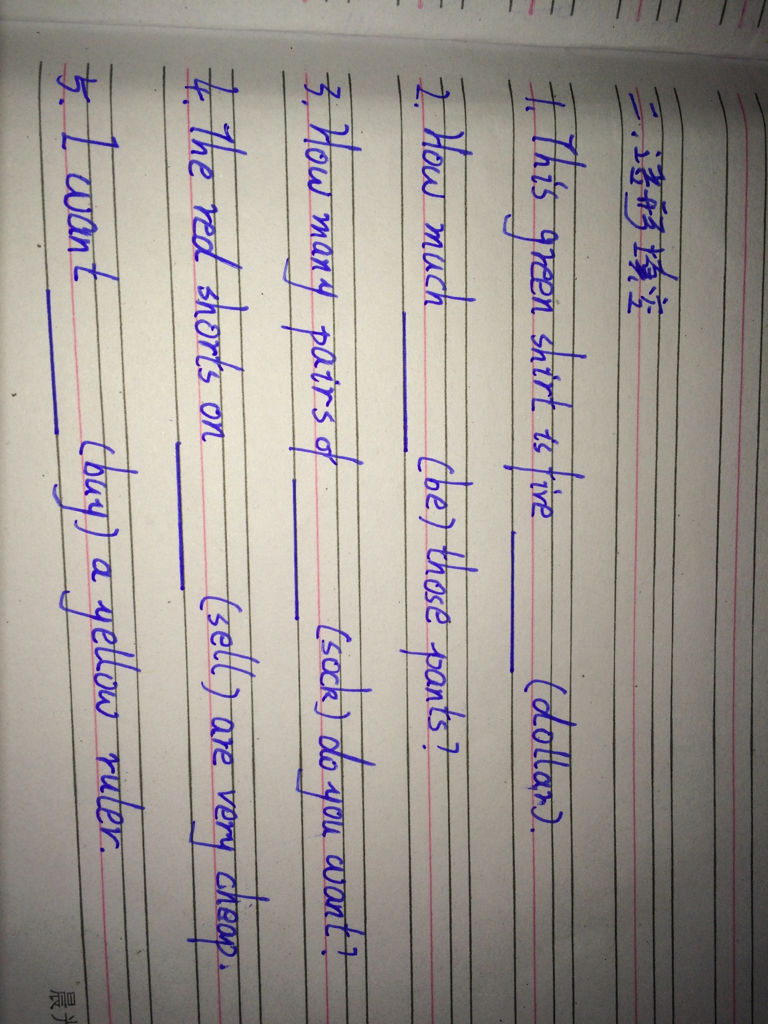 二、语形填空
1. This green shirt is five ______ (dollar).
2. How much ______ (be) those pants?
3. How many pairs of ______ (sock) do you want?
4. The red shorts on ______ (sell) are very cheap.
5. I want ______ (buy) a yellow ruler.